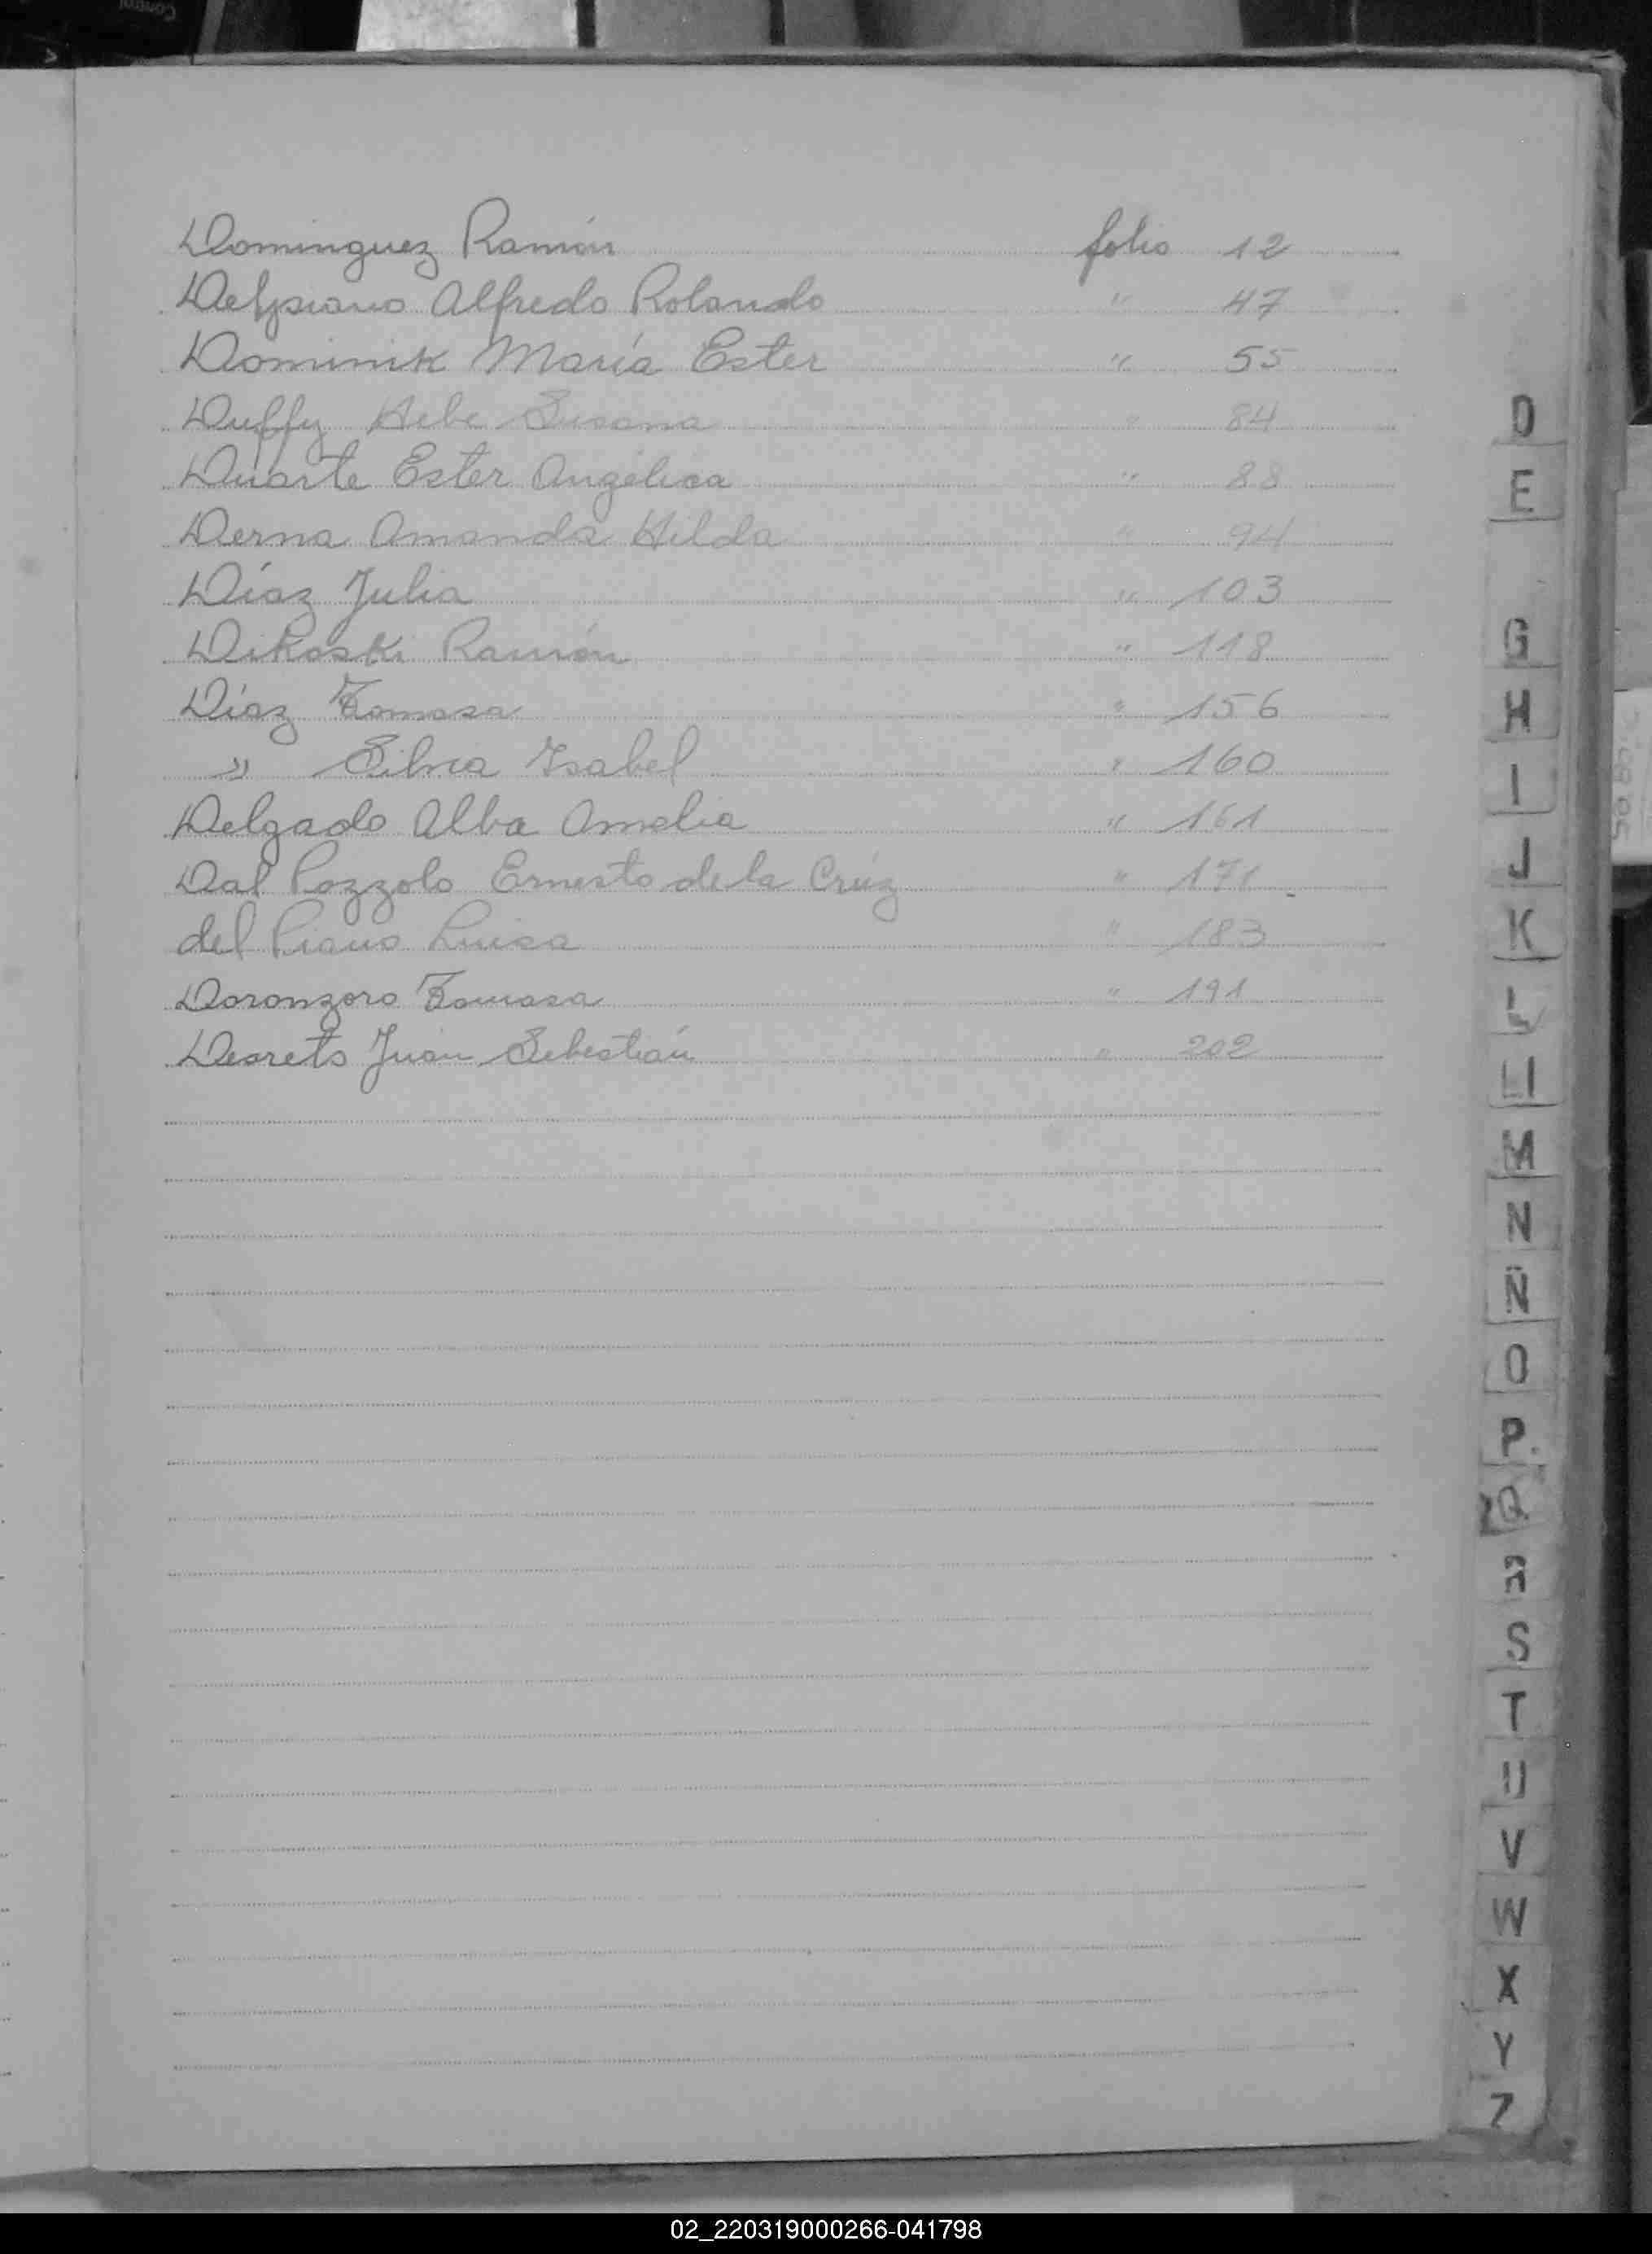 Dominguez Ramón folio 12
Delpiano Alfredo Rolando " 47
Dominik María Ester " 55
Duffy Hebe Susana " 84
Duarte Ester Angélica " 88
Derna Amanda Hilda " 94
Díaz Julia " 103
Dikoski Ramón " 118
Díaz Tomasa " 156
" Silvia Isabel " 160
Delgado Alba Amelia " 161
Dal Pozzolo Ernesto de la Crúz " 171
del Piano Luisa " 183
Doronzoro Tomasa " 191
Juan Sebastián " 202
D
E
G
H
I
J
K
L
Ll
M
N
Ñ
O
P
Q
R
S
T
U
V
W
X
Y
Z
02_220319000266-041798